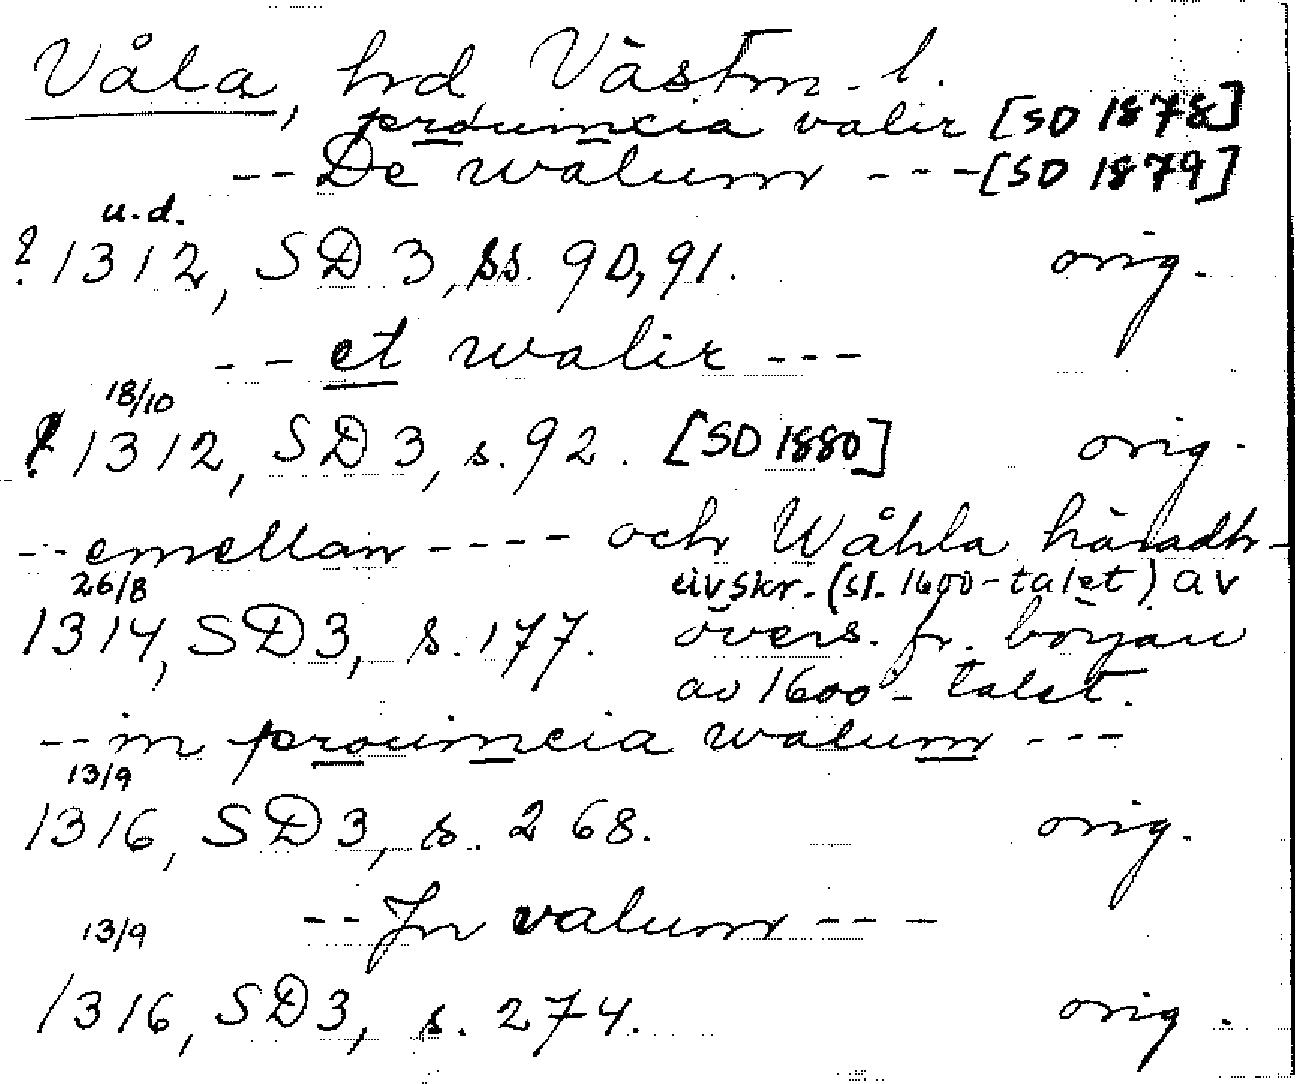 Våla, hrd, Västm. l.
prouincia valir [SD 1878]
-- De walum --- [SD 1879]
u.d.
? 1312, SD 3, ss. 90, 91. orig.
-- et walir ---
18/10
? 1312, SD 3, s. 92. [SD 1880] orig.
-- emellan ---- och Wåhla häradh -
26/8 avskr. (sl. 1600-talet) av
1314, SD 3, s. 177. övers. fr. början
av 1600-talet.
-- in prouincia walum ---
13/9
1316, SD 3, s. 268. orig.
-- Jn valum ---
13/9
1316, SD 3, s. 274. orig.